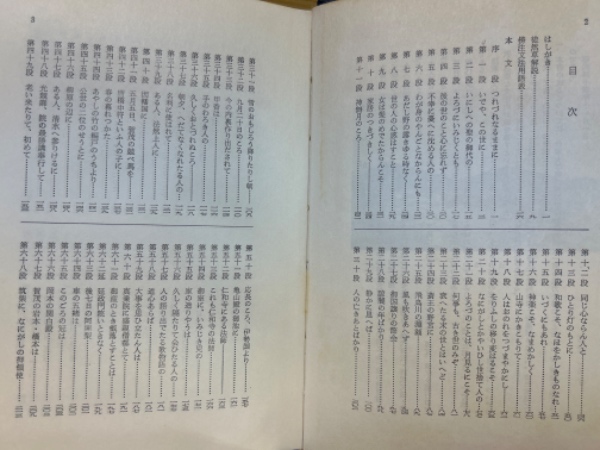 2
目次
はしがき
徒然草解説
傍注文法用語表
本文
序段 つれづれなるままに
第一段 いでや、この世に
第二段 いにしへの聖の御代の
第三段 よろづにいみじくとも
第四段 後の世のこと心に忘れず
第五段 不幸に憂へに沈める人の
第六段 わが身のやんごとなからんにも
第七段 あだし野の露きゆる時なく
第八段 世の人の心惑はすこと
第九段 女は髪のめでたからんこそ
第十段 家居のつきづきしく
第十一段 神無月のころ
第十二段 同じ心ならん人と
第十三段 ひとり灯のもとに
第十四段 和歌こそ、なほをかしきものなれ
第十五段 いづくにもあれ
第十六段 神楽こそ、なまめかしく
第十七段 山寺にかきこもりて
第十八段 人はおのれをつづまやかにし
第十九段 をりふしの移り変はるこそ
第二十段 なにがしとかやいひし世捨て人の
第二十一段 よろづのことは、月見るにこそ
第二十二段 何事も、古き世のみぞ
第二十三段 衰へたる末の世とはいへど
第二十四段 斎王の野宮に
第二十五段 飛鳥川の淵瀬
第二十六段 風も吹きあへず
第二十七段 御国譲りの節会
第二十八段 諒闇の年ばかり
第二十九段 静かに思へば
第三十段 人のなきあとばかり
3
第三十一段 雪のおもしろう降りたりし朝
第三十二段 九月二十日のころ
第三十三段 今の内裏作り出だされて
第三十四段 甲香は
第三十五段 手のわろき人の
第三十六段 久しくおとづれぬころ
第三十七段 朝夕、へだてなくなれたる人の
第三十八段 名利に使はれて
第三十九段 ある人、法然上人に
第四十段 因幡国に
第四十一段 五月五日、賀茂の競べ馬を
第四十二段 唐橋中将といふ人の子に
第四十三段 春の暮れつかた
第四十四段 あやしの竹の編戸のうちより
第四十五段 公世の二位のせうとに
第四十六段 柳原の辺に
第四十七段 ある人、清水へ参りけるに
第四十八段 光親卿、院の最勝講奉行して
第四十九段 老い来たりて、初めて
第五十段 応長のころ、伊勢国より
第五十一段 亀山殿の御池に
第五十二段 仁和寺にある法師
第五十三段 これも仁和寺の法師
第五十四段 御室に、いみじき児の
第五十五段 家の造りやうは
第五十六段 久しく隔たりて会ひたる人の
第五十七段 人の語り出でたる歌物語の
第五十八段 道心あらば
第五十九段 大事を思ひ立たん人は
第六十段 真乗院に盛親僧都とて
第六十一段 御産のとき甑落とすことは
第六十二段 延政門院いときなく
第六十三段 後七日の阿闍梨
第六十四段 車の五緒は
第六十五段 このごろの冠は
第六十六段 岡本の関白殿
第六十七段 賀茂の岩本・橋本は
第六十八段 筑紫に、なにがしの押領使